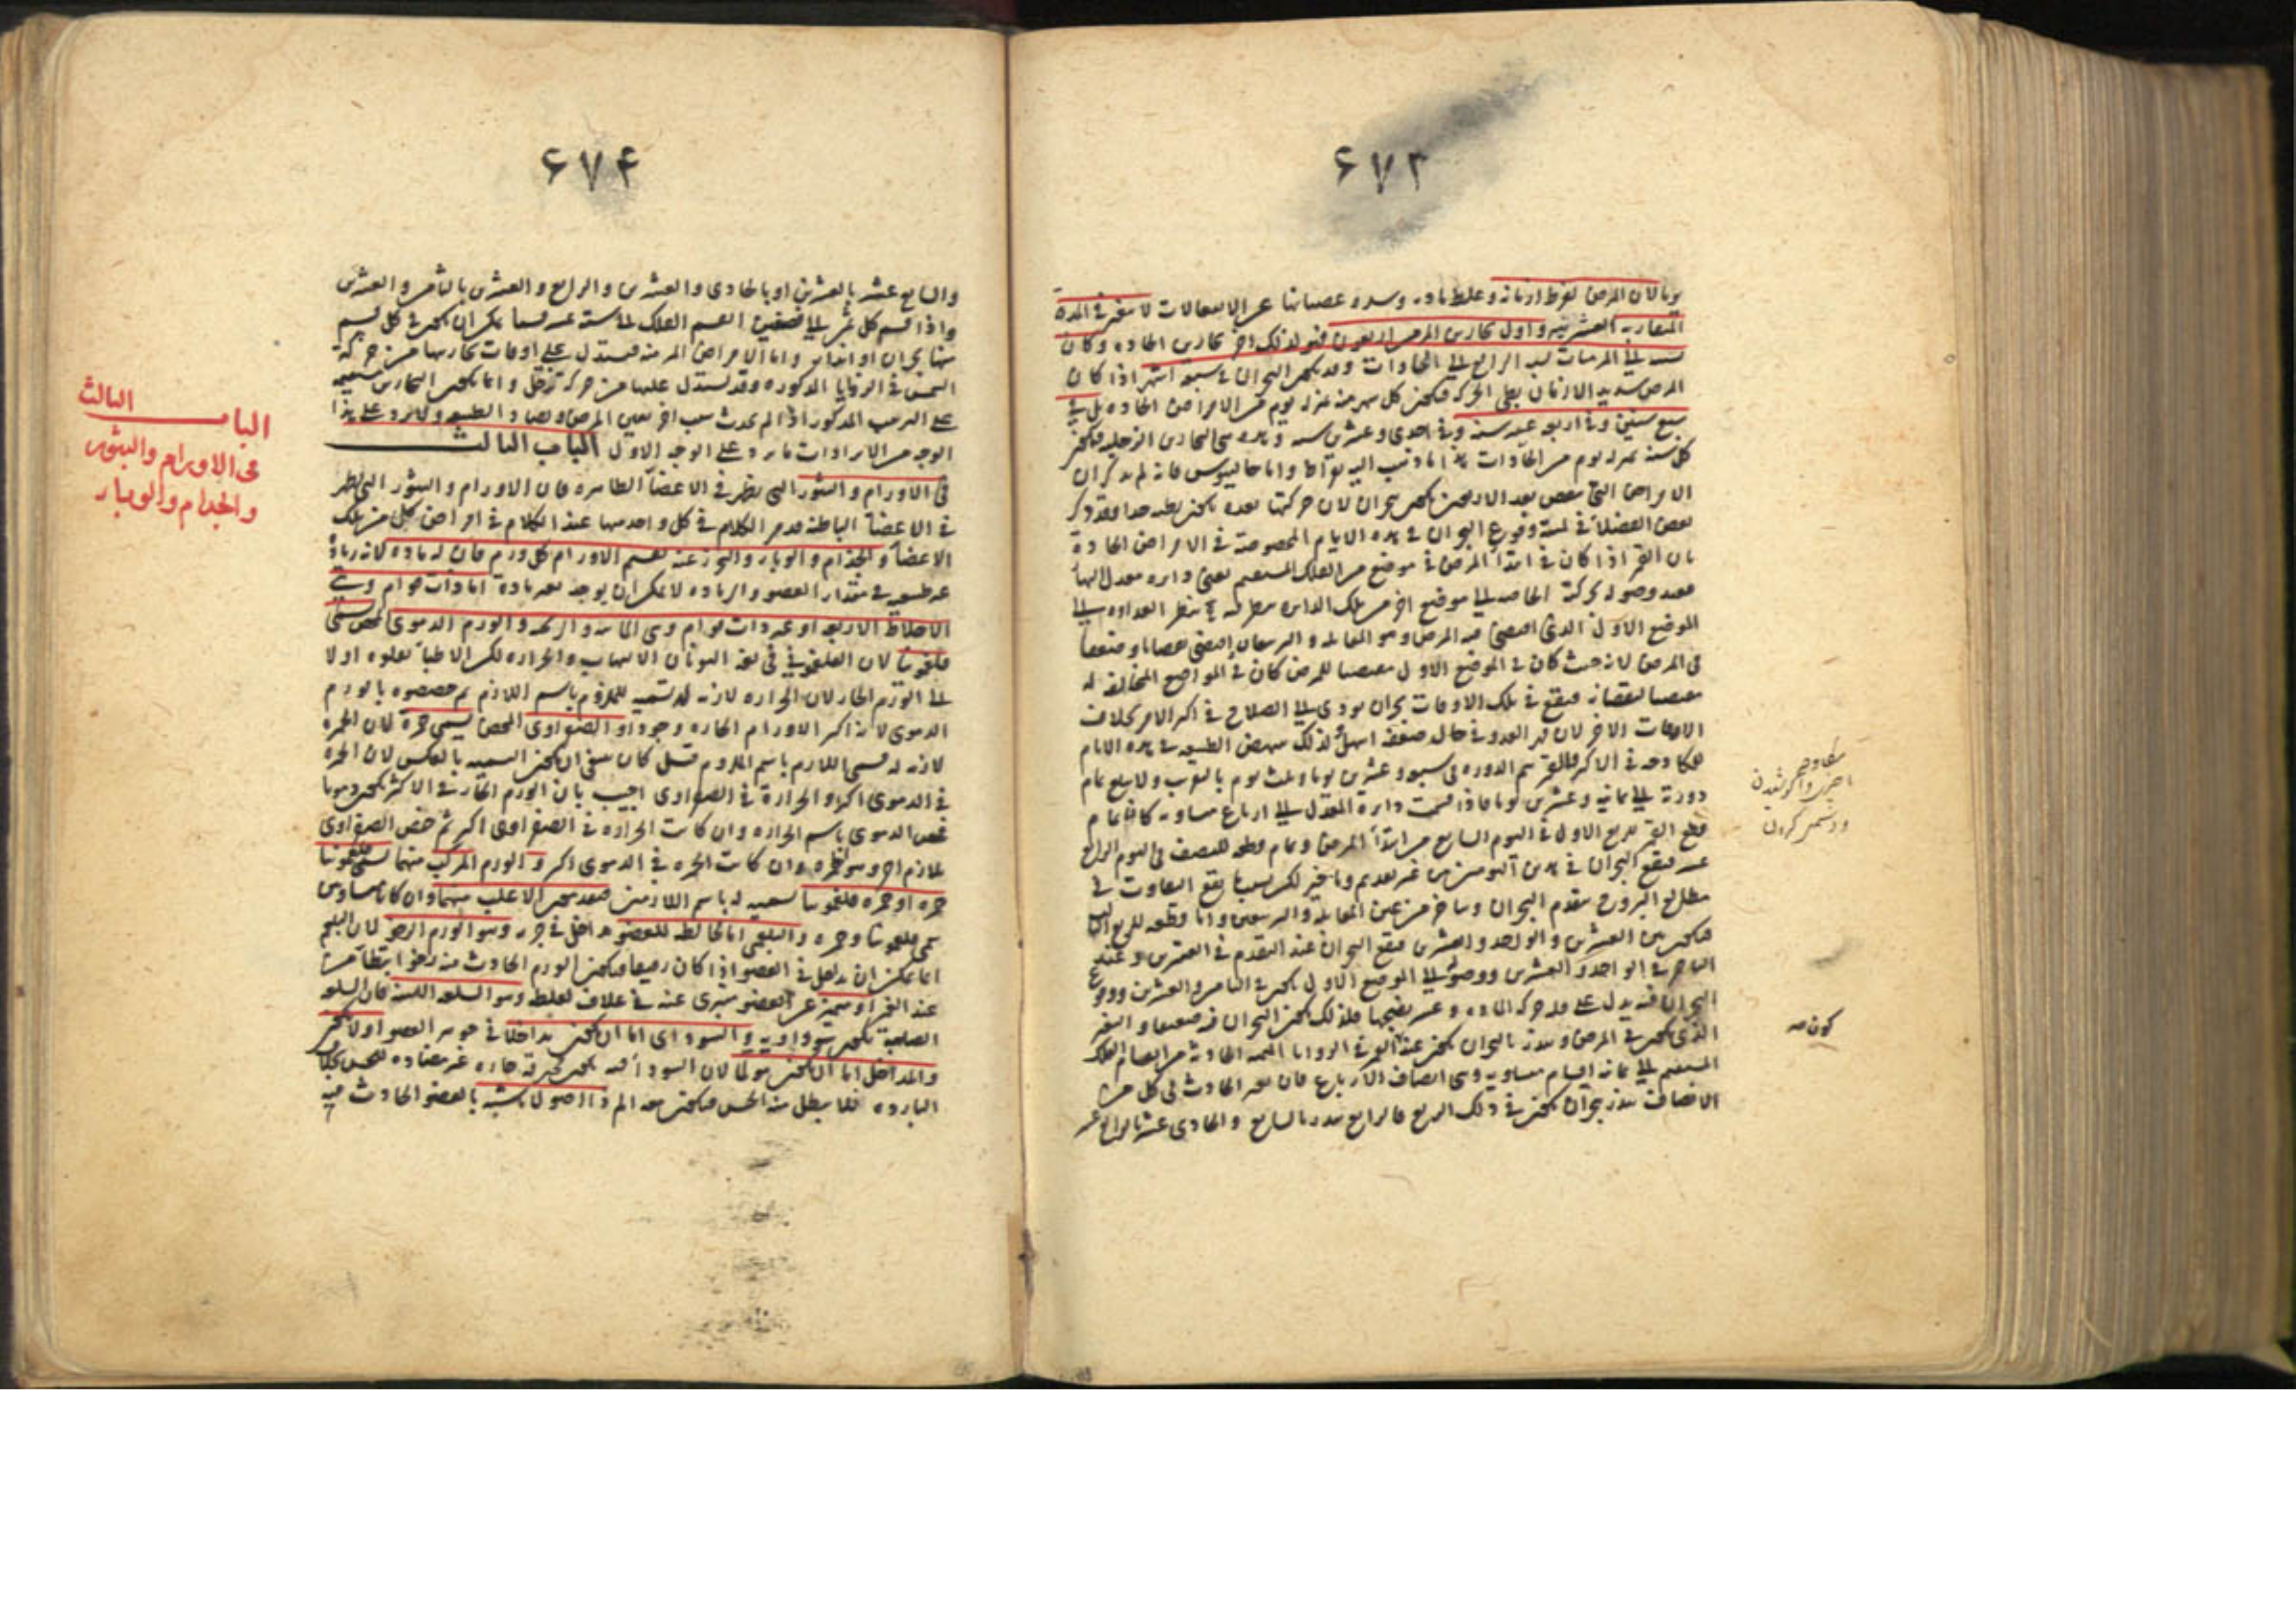 ۶۷۳
يوما لان المرض لفرط ازمانه وغلظ مادته وعصيانها عن الانفعالات لا يتغير في المدة
المتقاربة العشرينية واول بحارين المزمنة اربعون فهو لذلك اخر بحارين الحادة وكان
نسبته الى المزمنات نسبة الرابع الى الحادات وقد يكون البحران في سبعة اشهر اذا كان
المرض شديد الازمان بطى الحركة فيكون كل شهر منه بمنزلة يوم من الامراض الحادة بل في
سبع سنين وفي اربع عشر سنة وفي احدى وعشرين سنة وهذه هي البحارين الزحلية فيكون
كل سنة بمنزلة يوم من الحادات هذا ما ذهب اليه بقراط واما جالينوس فانه لم يذكر ان
الامراض التي تنقضي بعد الاربعين يكون ببحران لان حركتها بعده يكون بطيئة جدا وقد ذكر
بعض الفضلاء في لمية وقوع البحران في هذه الايام المخصوصة في الامراض الحادة
بان القمر اذا كان في ابتداء المرض في موضع من الفلك المستقيم يعنى دائرة معدل النهار
فعند وصوله بحركته الخاصة الى موضع اخر من تلك الدائرة ينظر منه نظر العداوة الى
الموضع الاول الذي اقتضى فيه المرض وهو المقابلة والتربيعان اقتضى نقصانا وضعفا
في المرض لانه حيث كان في الموضع الاول مقتضيا للمرض كان في المواضع المخالفة له
مقتضيا لنقصانه فيقع في تلك الاوقات بحران يودى الى الصلاح في اكثر الامر بخلاف
الاوقات الاخر لان قهر العدو في حال ضعفه اسهل فلذلك تنهض الطبيعة في هذه الايام
للمكاوحة في الاكثر فالقمر يتم الدورة في سبعة وعشرين يوما وثلث يوم بالتقريب ولا يبلغ تمام
دورته الى ثمانية وعشرين يوما فاذا قسمت دائرة المعدل الى ارباع متساوية كان تمام
قطع القمر للربع الاول في اليوم السابع من ابتداء المرض وتمام قطعه للنصف في اليوم الرابع
عشر فيقع البحران في هذين اليومين من غير تقديم وتاخير لكن بسبب ما يقع التفاوت في
مطالع البروج يتقدم البحران ويتاخر عن عين المقابلة والتربيعين واما قطعه للربع الثالث
فيكون بين العشرين والواحد والعشرين فيقع البحران عند التقدم في العشرين وعند
التاخر في الواحد والعشرين ووصوله الى الموضع الاول يكون في الثامن والعشرين ووقوع
البحران فيه يدل على قلة حركة المادة وعسر نضجها فلذلك يكون البحران فيه ضعيفا والتغير
الذي يكون في المرض وينذر بالبحران يكون عند القمر في الزوايا الثمنية الحادثة من انقسام الفلك
المستقيم الى ثمانية اقسام متساوية وهي انصاف الارباع فان تغير الحادث في كل من
الانصاف ينذر ببحران يكون في ذلك الربع فالرابع ينذر بالسابع والحادى عشر بالرابع عشر
مكاوحه
كردن
كون صه
۶۷۴
والسابع عشر بالعشرين او بالحادى والعشرين والرابع والعشرين بالثامن والعشرين
واذا قسم كل ثمن الى نصفين انقسم الفلك الى ستة عشر قسما يمكن ان يكون في كل قسم
منها بحران او انذار واما الامراض المزمنة فيستدل على اوقات بحارينها من حركة
الشمس في الزوايا المذكورة وقد يستدل عليها من حركة زحل وانما يكون البحارين
على الترتيب المذكور اذا لم يحدث سبب اخر يعين المرض ويضاد الطبيعة ولا يرد على هذا
الوجه من الايرادات ما يرد على الوجه الاول الباب الثالث
في الاورام والبثور التي يظهر في الاعضاء الظاهرة فان الاورام والبثور التي يظهر
في الاعضاء الباطنة قد مر الكلام في كل واحد منها عند الكلام في امراض كل من تلك
الاعضاء والجذام والوباء والتحرز عنه نقسم الاورام كل ورم فان له مادة لانه زيادة
غير طبيعية في مقدار العضو والزيادة لا يمكن ان يوجد بغير مادة اما ذات قوام وهي
الاخلاط الاربعة او غير ذات قوام وهي المائية والريحية والورم الدموى المحض يسمى
فلغمونيا لان الفلغموني في لغة اليونان الالتهاب والحرارة لكن الاطباء نقلوه اولا
الى الورم الحار لان الحرارة لازمة له تسمية للملزوم باسم اللازم ثم خصصوه بالورم
الدموى لانه اكثر الاورام الحارة وجودا والصفراوى المحض يسمى حمرة لان الحمرة
لازمة له فسمى اللازم باسم الملزوم قيل كان ينبغى ان يكون التسمية بالعكس لان الحمرة
في الدموى اكثر والحرارة في الصفراوى اجيب بان الورم الحار في الاكثر يكون دمويا
فخص الدموى باسم الحرارة وان كانت الحرارة في الصفراوى اكثر ثم خص الصفراوى
بلازم اخر وهو الحمرة وان كانت الحمرة في الدموى اكثر والورم المركب منهما يسمى فلغمونيا
حمرة او حمرة فلغمونيا تسمية له باسم اللازمين فيقدم الاغلب منهما وان كانا متساويين
سمى فلغمونيا وحمرة والبلغمى اما مخالط للعضو مداخل في جرمه وهو الورم الرخو لان البلغم
انما يمكن ان يدخل في العضو اذا كان رقيقا فيكون الورم الحادث منه رخوا منتظما من
عند الغمز او متميز عن العضو متبرى عنه في غلاف لغلظه وهو السلعة اللينة فان السلعة
الصلبة يكون سوداوية والسوداى اما ان يكون مداخلا في جوهر العضو اولا يكون
والمداخل اما ان يكون مولما لان السوداء فيه يكون محرقة حارة غير مضادة للحس
الباردة فلا يبطل منه الحس فيكون معه الم ذا اصول ناشبة بالعضو الحادث فيه
البا ب الثالث
فى الاورام والبثور
والجذام والوباء